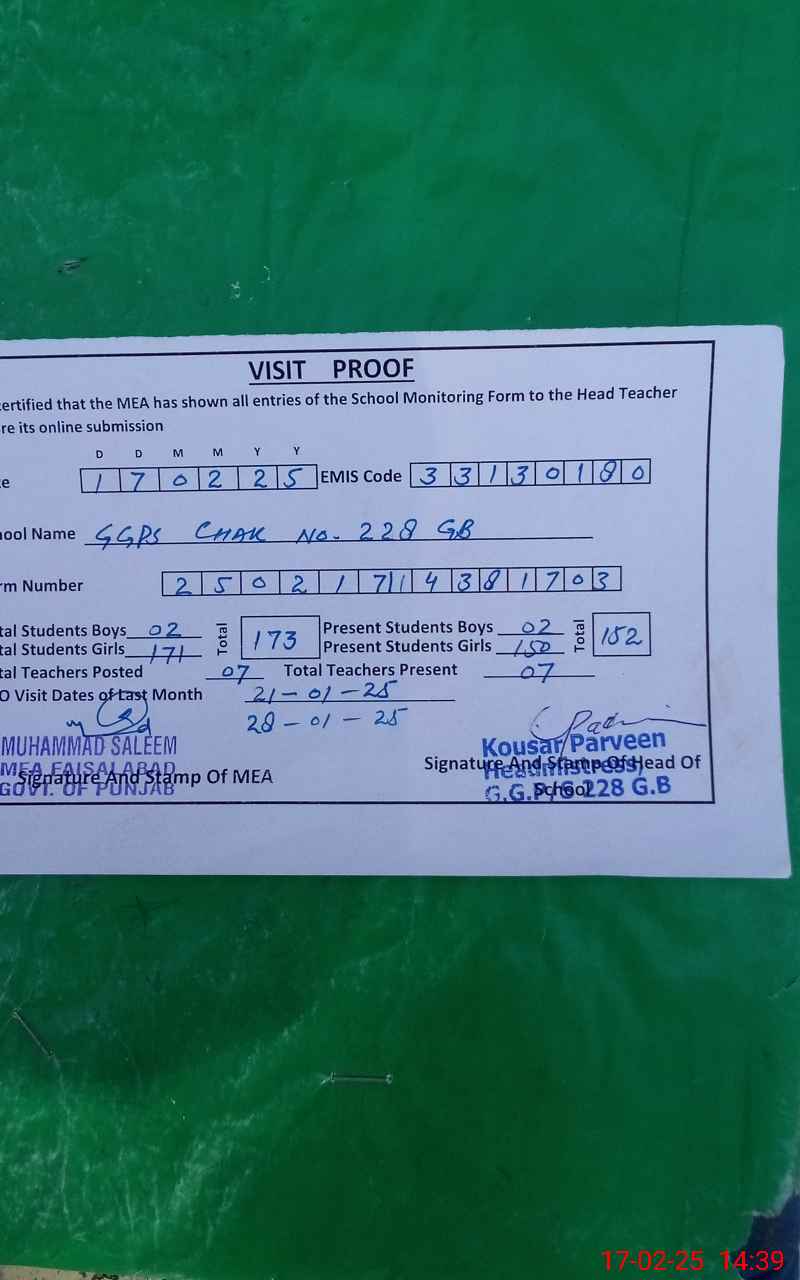 VISIT PROOF
ertified that the MEA has shown all entries of the School Monitoring Form to the Head Teacher
re its online submission
D D M M Y Y
e 1 7 0 2 2 5 EMIS Code 3 3 1 3 0 1 8 0
ool Name GGPS CHAK No. 228 GB
rm Number 2 5 0 2 1 7 1 4 3 8 1 7 0 3
tal Students Boys 02 Total 173 Present Students Boys 02 Total 152
tal Students Girls 171 Present Students Girls 150
tal Teachers Posted 07 Total Teachers Present 07
O Visit Dates of Last Month 21-01-25
28-01-25
MUHAMMAD SALEEM
MEA FAISALABAD
GOVT. OF PUNJAB
Signature And Stamp Of MEA
Kousar Parveen
Headmistress
G.G.P/S 228 G.B
Signature And Stamp Of Head Of
School
17-02-25 14:39